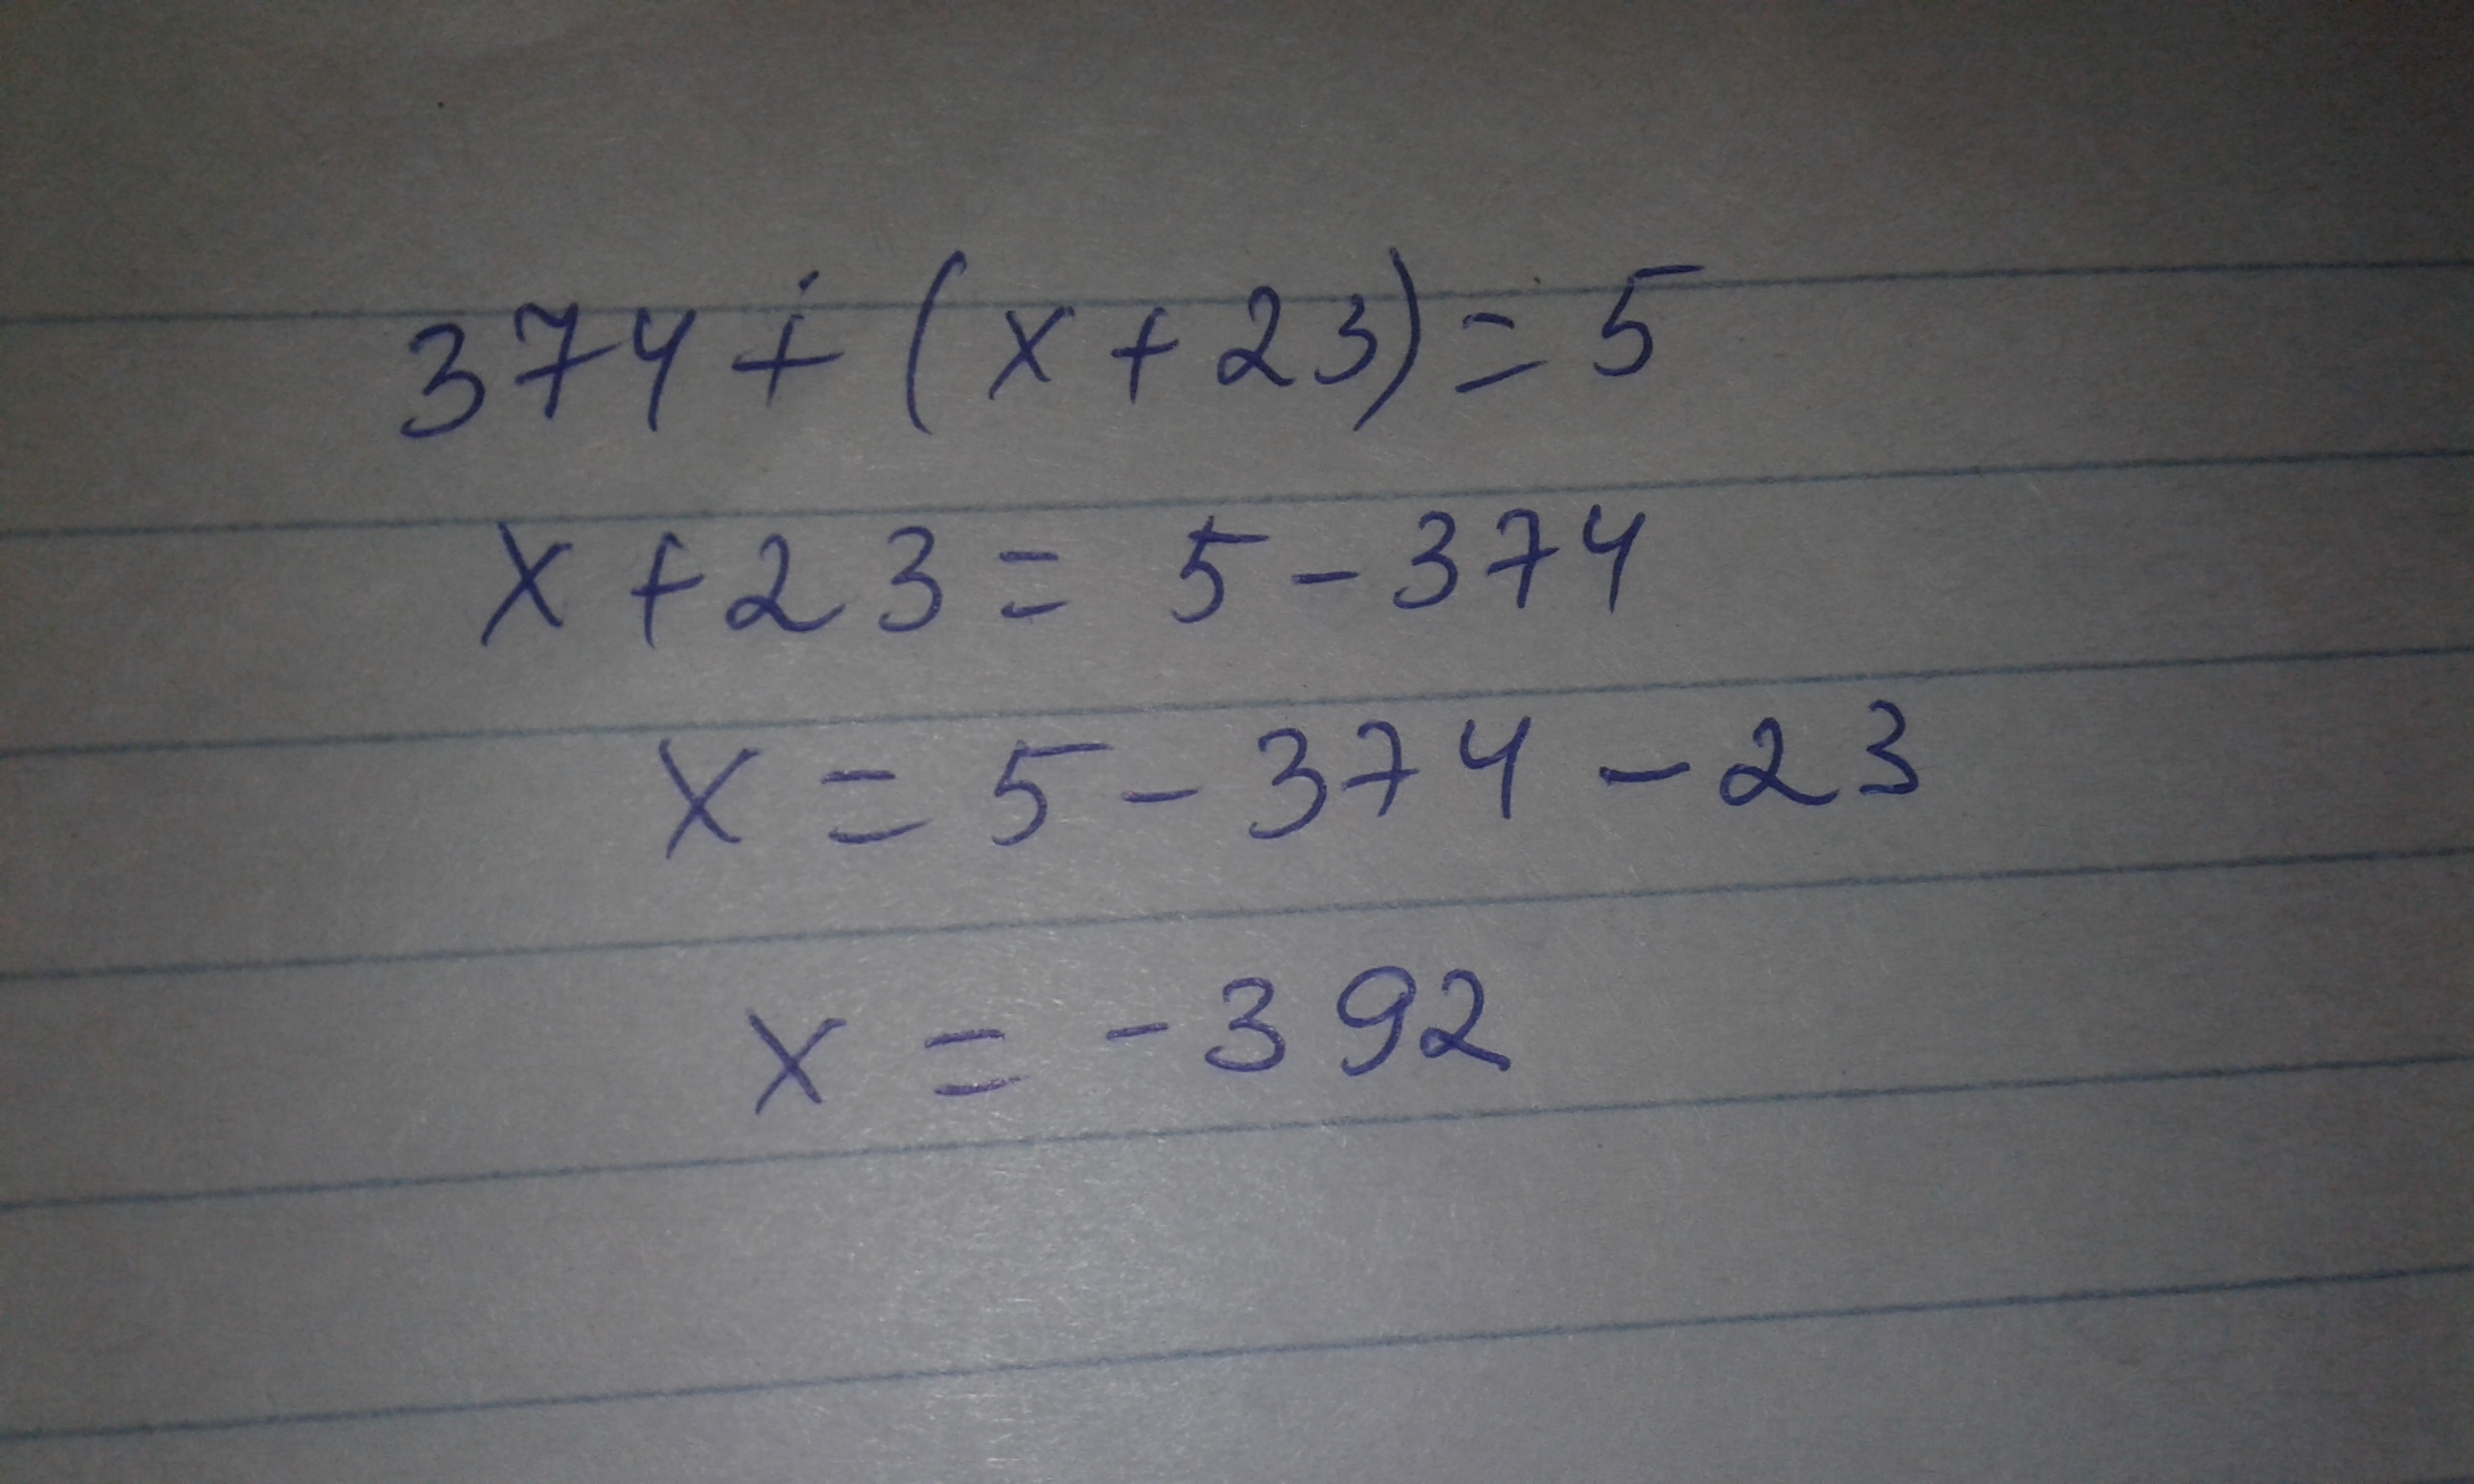 374 + (x + 23) = 5
x + 23 = 5 - 374
x = 5 - 374 - 23
x = - 392